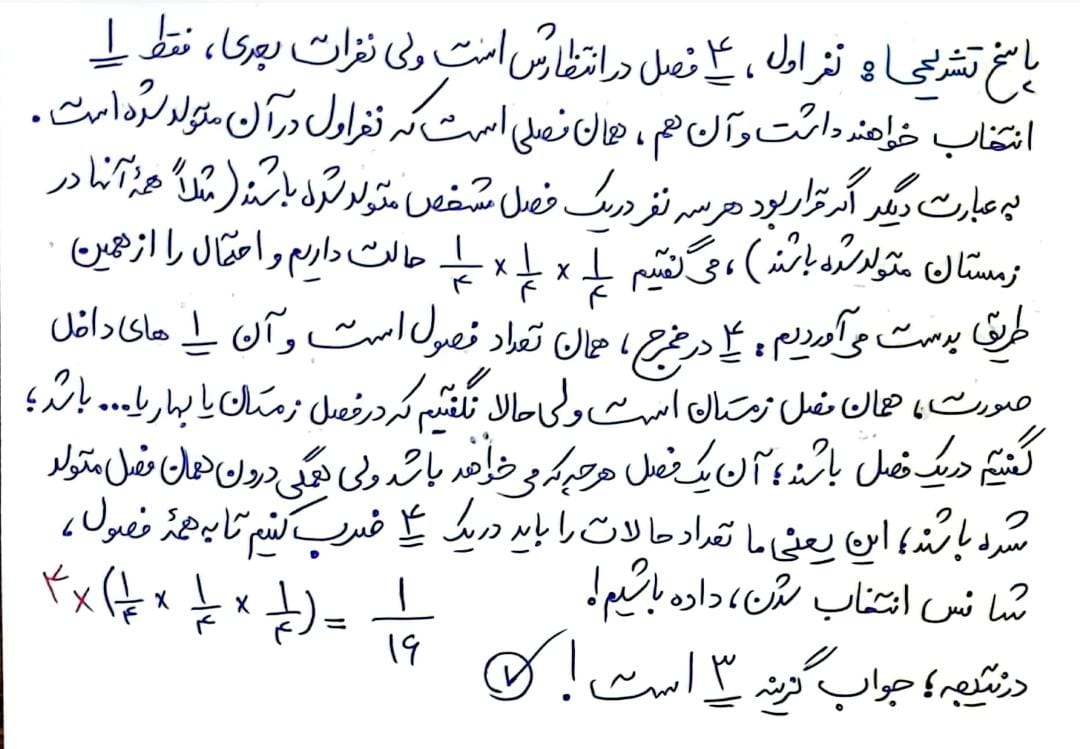 پاسخ تشریحی: نفر اول، ۴ فصل در انتظارش است ولی نفرات بعدی، فقط ۱
انتخاب خواهند داشت و آن هم، همان فصلی است که نفر اول در آن متولد شده است.
به عبارت دیگر اگر قرار بود هر سه نفر در یک فصل مشخص متولد شده باشند (مثلاً همهٔ آنها در
زمستان متولد شده باشند)، می‌گفتیم ۱/۴ × ۱/۴ × ۱/۴ حالت داریم و احتمال را از همین
طریق بدست می‌آوردیم. ۴ در مخرج، همان تعداد فصول است و آن ۱ های داخل
صورت، همان فصل زمستان است ولی حالا نگفتیم که در فصل زمستان یا بهار یا... باشد؛
گفتیم در یک فصل باشند؛ آن یک فصل هرچه که می‌خواهد باشد ولی همگی درون همان فصل متولد
شده باشند؛ این یعنی ما تعداد حالات را باید در یک ۴ ضرب کنیم تا به همهٔ فصول،
شانس انتخاب شدن، داده باشیم! ۴ × (۱/۴ × ۱/۴ × ۱/۴) = ۱/۱۶
در نتیجه؛ جواب گزینه ۳ است!